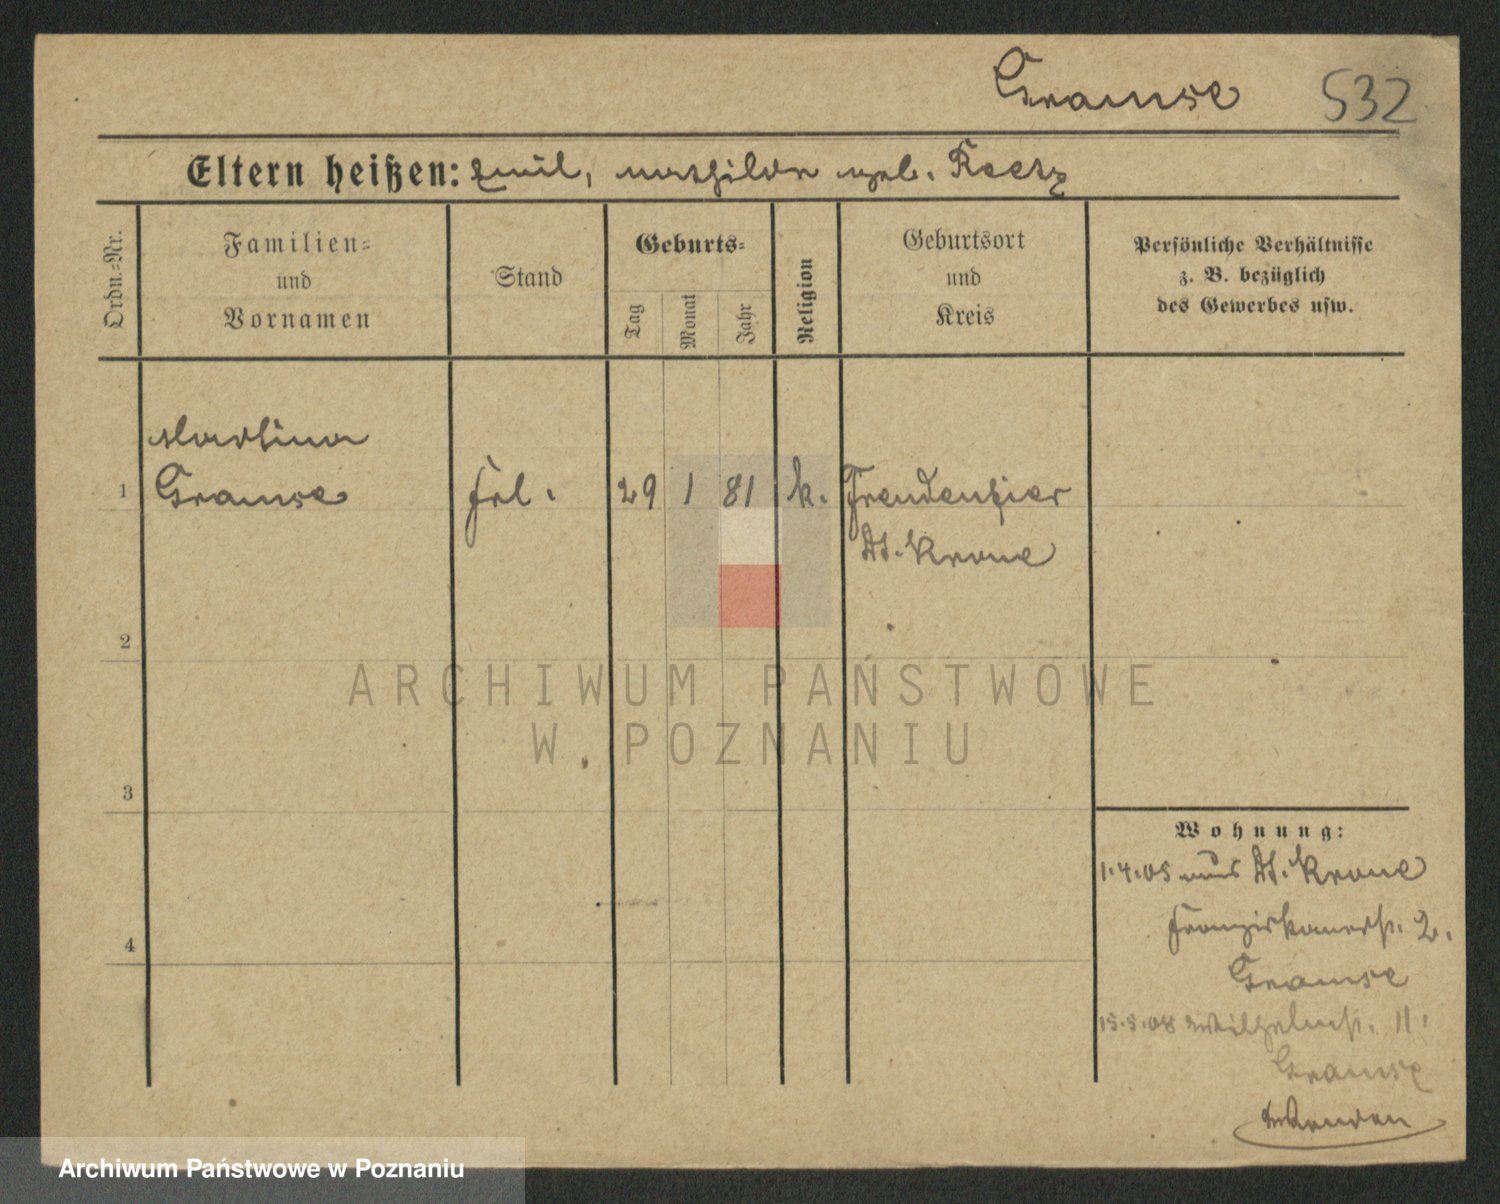 Gramse 532
Eltern heißen: Emil, Mathilde geb. Raatz
Ordn.=Nr.
Familien=
und
Vornamen
Stand
Geburts=
Tag
Monat
Jahr
Religion
Geburtsort
und
Kreis
Persönliche Verhältnisse
z. B. bezüglich
des Gewerbes usw.
Gramse
1 Frl. 29 1 81 k. Freudenfier
Dt. Krone
2
ARCHIWUM PAŃSTWOWE
W POZNANIU
3
Wohnung:
1.4.05 aus Dt. Krone
4
Franziskanerst. 2.
Gramse
15.5.08 Wilhelmst. 11.
Gramse
Archiwum Państwowe w Poznaniu